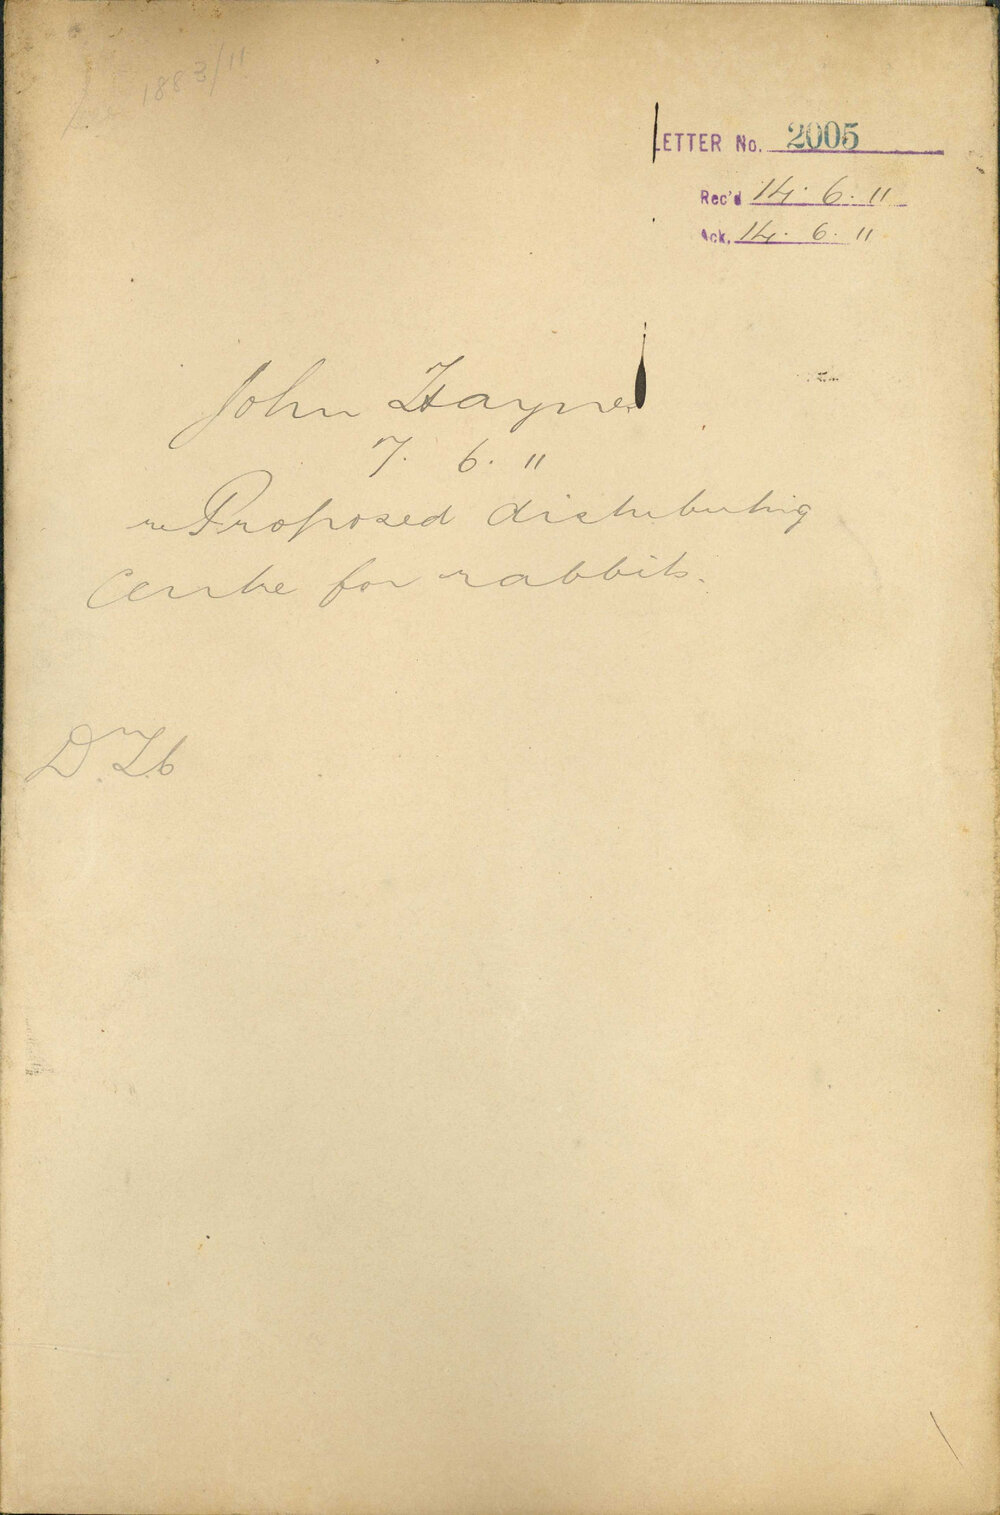 1883/11
LETTER No. 2005
Rec'd 14. 6. 11
Ack. 14. 6. 11
John Hayne
7. 6. 11
re Proposed distributing
Centre for rabbits.